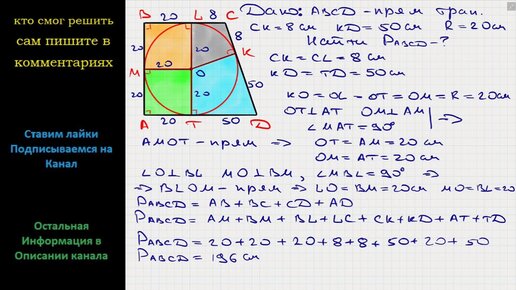 кто смог решить
сам пишите в
комментариях
Ставим лайки
Подписываемся на
Канал
Остальная
Информация в
Описании канала
B 20 L 8 C
20 20 8
20 K
M O 50
20 20
A 20 T 50 D
Дано: ABCD - прям трап.
CK = 8 см KD = 50 см R = 20 см
Найти PABCD - ?
CK = CL = 8 см
KD = TD = 50 см
KO = OL = OT = OM = R = 20 см
OT ⊥ AT OM ⊥ AM
∠MAT = 90°
AMOT - прям ⇒ OT = AM = 20 см
OM = AT = 20 см
LO ⊥ BL MO ⊥ BM, ∠MBL = 90° ⇒
⇒ BLOM - прям ⇒ LO = BM = 20 см MO = BL = 20
PABCD = AB + BC + CD + AD
PABCD = AM + BM + BL + LC + CK + KD + AT + TD
PABCD = 20 + 20 + 20 + 8 + 8 + 50 + 20 + 50
PABCD = 196 см